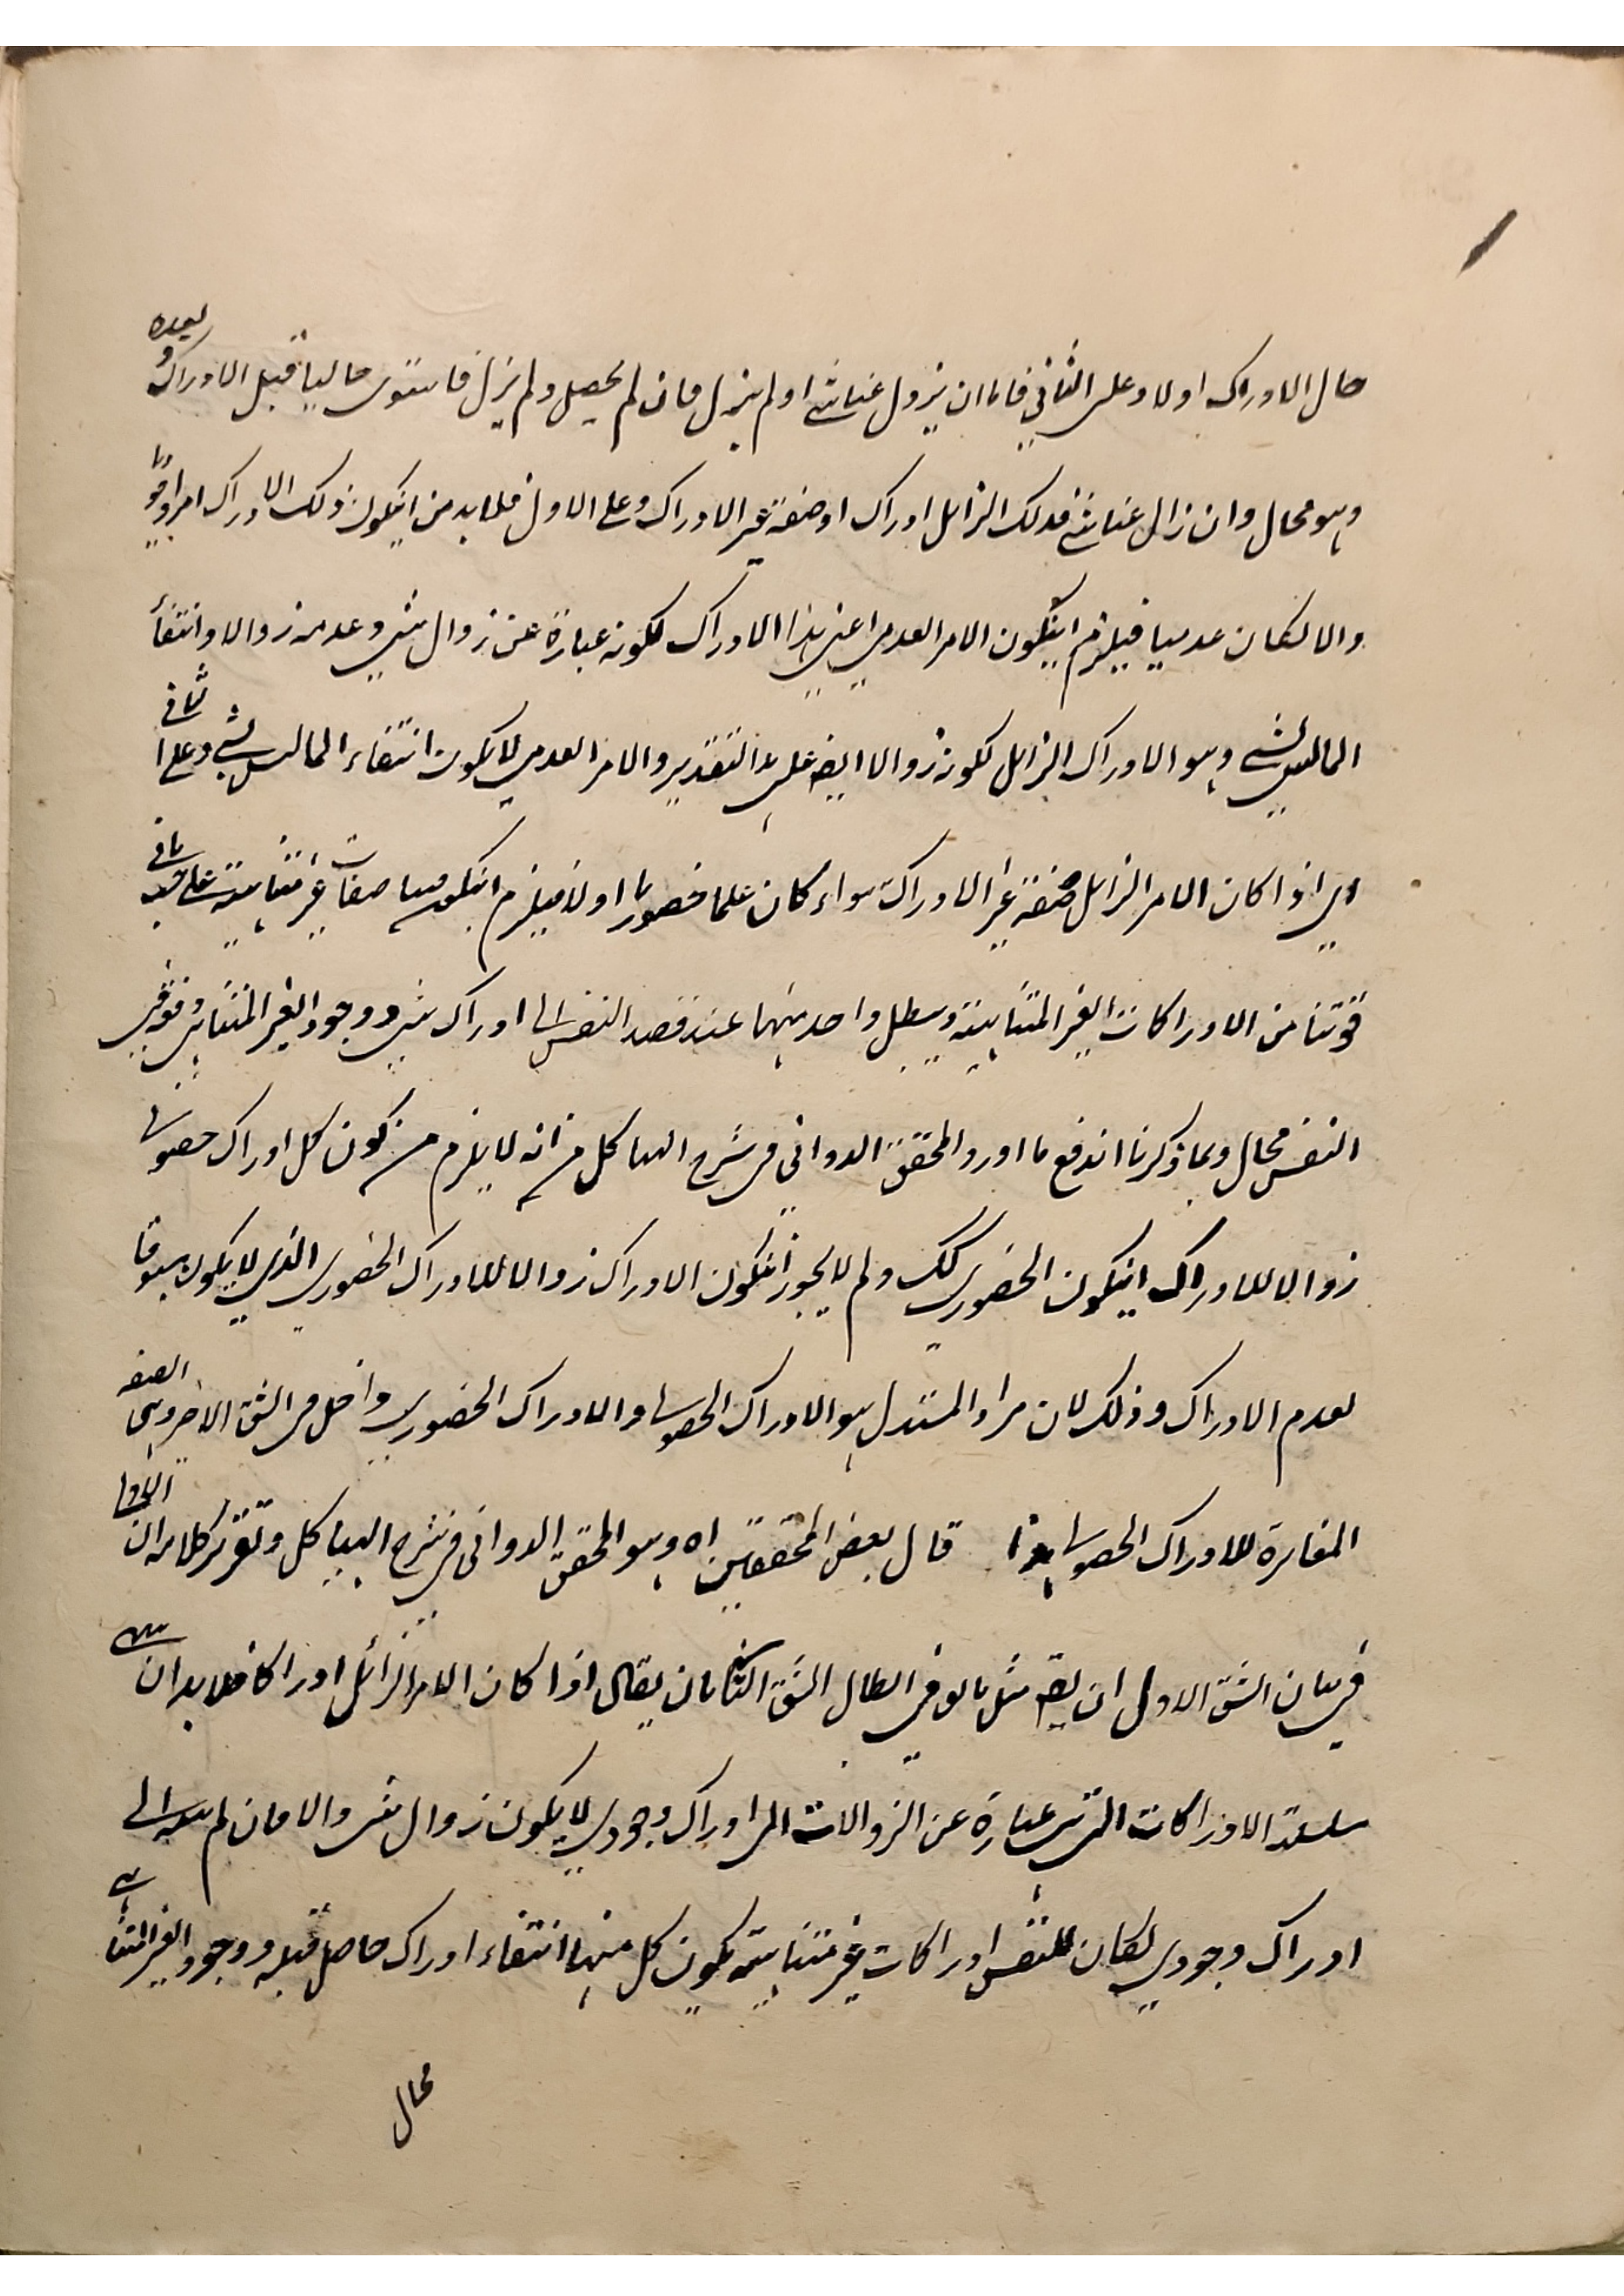 حال الادراك اولا وعلى الثاني فاما ان يزول عنا شئ او لم يزل فان لم يحصل ولم يزل فاستوى حالنا قبل الادراك و بعده
وهو محال وان زال عنا شئ فذلك الزايل ادراك او صفة غير الادراك وعلى الاول فلابد من ان يكون ذلك الادراك امرا وجوديا
والا لكان عدميا فيلزم ان يكون الامر العدمي اعني هذا الادراك لكونه عبارة عن زوال شئ وعدمه زوالا وانتفاء
لما ليس بشئ وهو الادراك الزايل لكونه زوالا ايضا على هذا التقدير والامر العدمي لا يكون انتفاء لما ليس بشئ وعلى الثاني
اي اذا كان الامر الزايل صفة غير الادراك سواء كان علما حضوريا اولا فيلزم ان يكون فينا صفات غير متناهية على حسب ما في
قوتنا من الادراكات الغير المتناهية ويبطل واحد منها عند قصد النفس الى ادراك شئ ووجود الغير المتناهي في
النفس محال وبما ذكرنا اندفع ما اورد المحقق الدواني في شرح الهياكل من انه لا يلزم من كون كل ادراك حصولي
زوالا للادراك ان يكون الحضوري كك ولم لا يجوز ان يكون الادراك زوالا للادراك الحضوري الذي لا يكون مسبوقا
لعدم الادراك وذلك لان مراد المستدل هو الادراك الحصولي والادراك الحضوري داخل في الشق الاخر وهي الصفة
المغايرة للادراك الحصولي هذا قال بعض المحققين اه وهو المحقق الدواني في شرح الهياكل وتقرير كلامه ان الاولى
في بيان الشق الاول ان يقم مثل ما لو في ابطال الشق الثاني بان يقال اذا كان الامر الزائل ادراكا فلابد ان ينتهي
سلسلة الادراكات التي هي عبارة عن الزوالات الى ادراك وجودي لا يكون زوال شئ والا فان لم ينته الى
ادراك وجودي لكان للنفس ادراكات غير متناهية يكون كل منها انتفاء ادراك حاصل قبله ووجود الغير المتناهي
محال